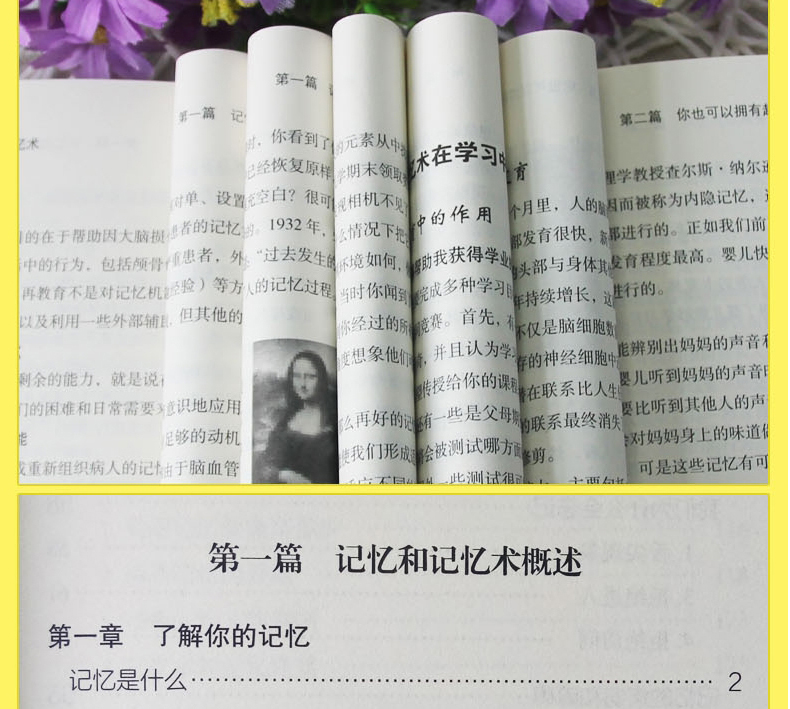 第一篇
第一篇
第二篇 你也可以拥有
忆术
时，你看到了
的元素从中
术在学习中
理学教授查尔斯·纳尔
对单、设置
已经恢复原样
学期末领取
因而被称为内隐记忆，
充空白？很可
现相机不见
中的作用
个月里，人的
部进行的。正如我们前
的在于帮助因大脑损
患者的记忆
的。1932年，
么情况下把
部发育很快，
发育程度最高。婴儿快
中的行为，包括颅骨
重患者，外
“过去发生的
环境如何，
帮助我获得学业
头部与身体其
进行的。
再教育不是对记忆机
经验）等方
人的记忆过程
当时你闻到
完成多种学习
年持续增长，这
以及利用一些外部辅助
但其他的
你经过的所
竞赛。首先，有
不仅是脑细胞数
能辨别出妈妈的声音和
度想象他们
，并且认为学
存的神经细胞中
婴儿听到妈妈的声音时
剩余的能力，就是说
传授给你的课程
在联系比人生
要比听到其他人的声
们的困难和日常需要
意识地应用
么再好的记
有一些是父母
的联系最终消失
对妈妈身上的味道
能
足够的动机
使我们形成
会被测试哪方面
修剪。
或重新组织病人的记忆
由于脑血管
一些测试很
可是这些记忆有可
第一篇 记忆和记忆术概述
第一章 了解你的记忆
记忆是什么⋯⋯⋯⋯⋯⋯⋯⋯⋯⋯⋯⋯⋯⋯⋯⋯ 2